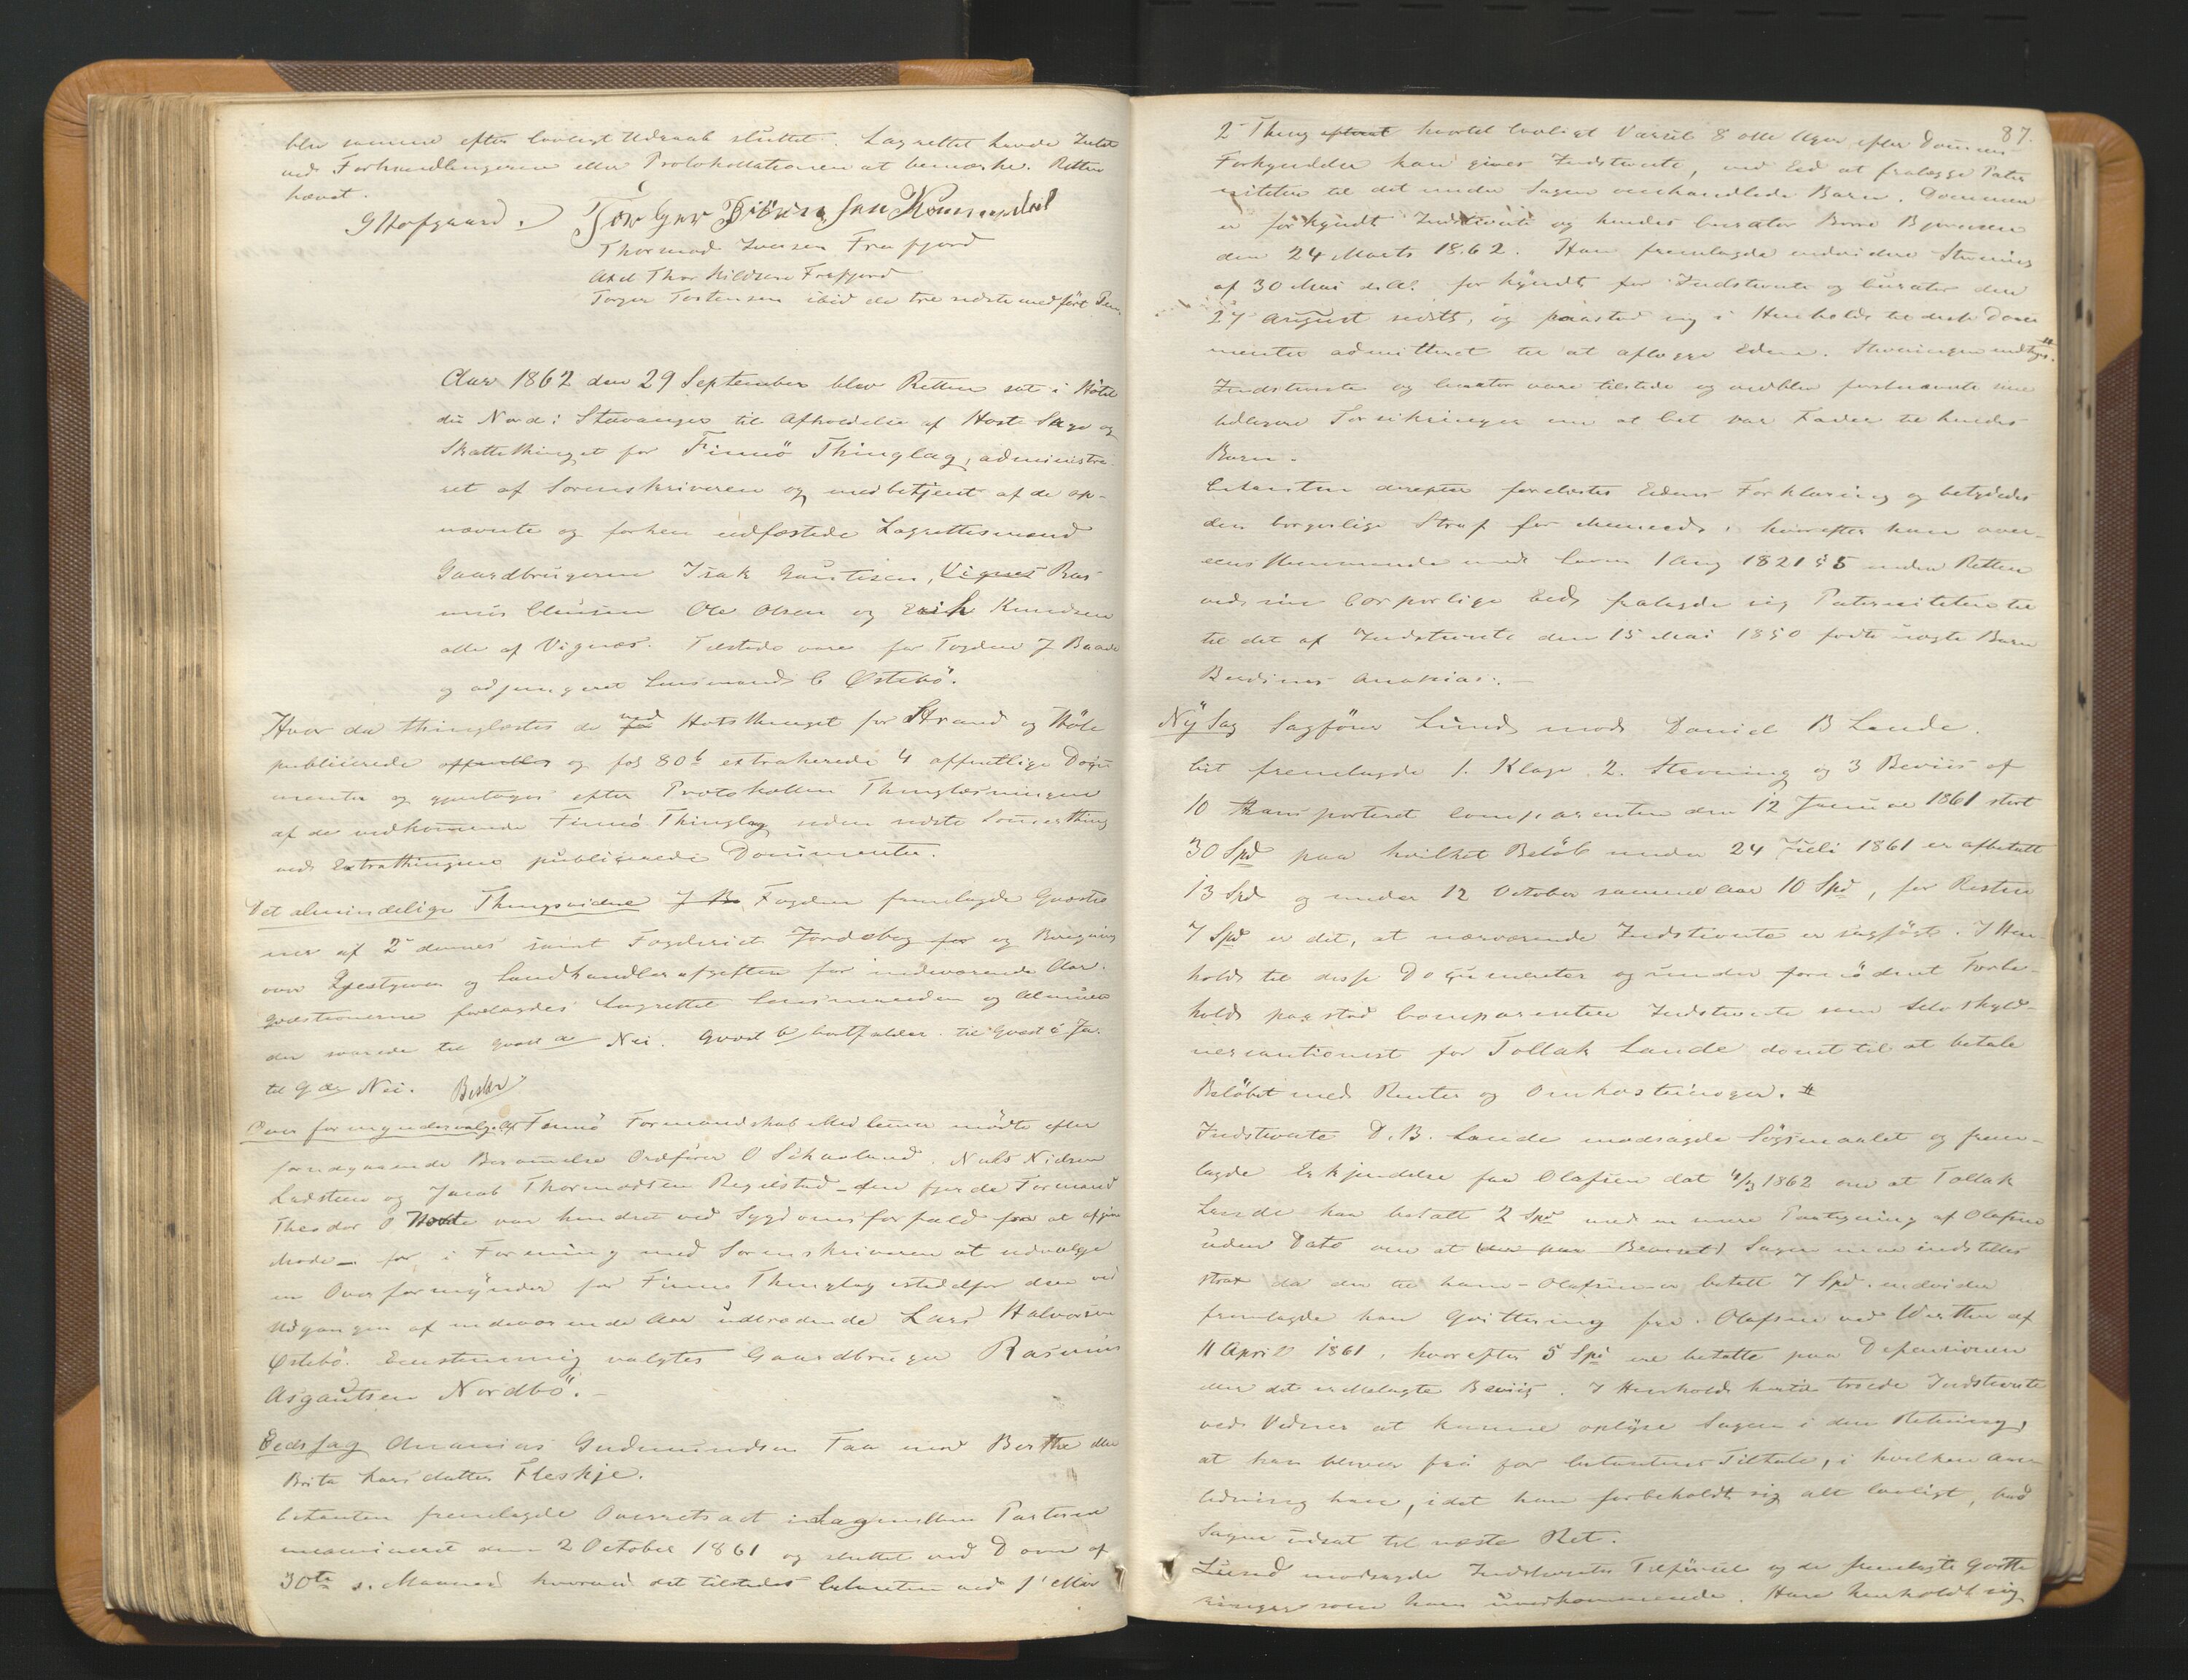 blev samme efter lovligt Udraab sluttet. Lagrettet havde Intet
ved Forhandlingerne eller Protokollationen at bemærke. Retten
hævet.
G Hofgaard. Torger Biörnsen
Thormod Iversen Frafjord
Axel Thorkildsen Frafjord
Torger Tostensen ibid de tre sidste med ført Pen.
Aar 1862 den 29 September blev Retten sat i Hôtel
du Nord i Stavanger til Afholdelse af Høst Sage og
Skattethinget for Finnö Thinglag, administre-
ret af Sorenskriveren og medbetjent af de op-
nævnte og forhen edfæstede Lagrettesmænd
Gaardbrugerne Isak Gautesen, Vignes Ras
mus Clausen Ole Olsen og Erik Knudsen
alle af Vignæs. Tilstede vare for Fogden J Baade
og adjungeret Lensmand C Østebö.
Hvor da thinglæstes de ved Høstthinget for Strand og Höle
publicerede offentlige og fol 80b extraherede 4 offentlige Docu
menter og gjentoges efter Protokollen Thinglæsningen
af de vedkommende Finnö Thinglag siden sidste Sommerthing
ved Extrathingene publicerede Documenter.
Det almindelige Thingsvidne J Ba Fogden fremlagde Qvæstio
ner af 2 dennes samt Fogderiets Jordebog for og Beregning
over Gjestgiver og Landhandlerafgiften for indeværende Aar.
Qvæstionerne forelagdes Lagrettet Lensmanden og Almuen
der svarede til Qvæst a Nei. Qvæst b bortfalder. til Qvæst c Ja.
til Q. d Nei. Beskr
Overformyndervalg. Af Finnö Formandskab Medlemmer mödte efter
foregaaende Berammelse Ordförer O Schanland. Niels Nielsen
Ladsteen og Jacob Thormodsen Regelstad – den fjerde Formand
Theodor O var hindret ved Sygdomsforfald fra at afgive
Møde – for i Forening med Sorenskriveren at udvælge
en Overformynder for Finnö Thinglag istedetfor den ved
Udgangen af indeværende Aar udtrædende Lars Halvorsen
Østebö. Eenstemmig valgtes Gaardbruger Rasmus
Asgautsen Nordbö.–
Eedssag Ananias Gudmundsen Faa mod Berthe eller
Brita Larsdatter Fleskje.
Citanten fremlagde Overretsact indeagentten
den 2 October 1861 og sluttet ved Dom af
30te s. Maaned hvorved det tilstedes Citanten ved 1' eller
87.
2' Thing efterat hvortil lovligt Varsel 8 otte Uger efter Dommens
Forkyndelse kan gives Indstevnte, ved Eed at fralægge Pater
niteten til det under Sagen omhandlede Barn. Dommen
er forkyndt Indstevnte og hendes Curator Bjørnsen
den 24 Marts 1862. Han fremlagde endvidere Stevning
af 30 Mai d. A. forkyndt for Indstevnte og Curator den
27 August sidstl. og paastod sig i Henhold til disse Docu
menter admitteret til at aflægge Eden. Stevningen indtages. #
Indstevnte og Curator vare tilstede og vedblev førstnævnte sine
tidligere Forsikringer om at Cit var Fader til hendes
Barn.
Citanten derefter forelæstes Edens Forklaring og betydedes
den borgerlige Straf for Meeneed, hvorefter han over-
eensstemmende med Loven 1 Aug 1821 § 5 inden Retten
ved sin corporlige Eed fralagde sig Paterniteten til
til det af Indstevnte den 15 Mai 1850 fødte uægte Barn
Berdines Ananias.–
Ny Sag Sagförer Lund mod Daniel B Lande.
Cit fremlagde 1. Klage 2. Stevning og 3 Beviis af
10 transporteret Comparenten den 12 Januar 1861 stort
30 Spd paa hvilket Belöb under 24 Juli 1861 er afbetalt
13 Spd og under 12 October samme Aar 10 Spd, for Resten
7 Spd er det, at nærværende Indstevnte er sagsögt. I Hen-
hold til disse Documenter og under fornödent Forbe-
hold paastod Comparenten Indstevnte som Selvskyld-
nercautionist for Tollak Lande dömt til at betale
Belöbet med Renter og Omkostninger. #
Indstevnte D. B. Lande modsagde Sögsmaalet og frem-
lagde Erkjendelse fra Olafsen dat 4/3 1862 om at Tollak
Lande har betalt 2 Spd med en mere Paategning af Olafsen
uden Dato om at (der paa Beviset) Sagen maa indstilles
strax da der til ham – Olafsen er betalt 7 Spd. endvidere
fremlagde han Qvittering fra Olafsen ved Werthe af
11 April 1861, hvorefter 5 Spd ere betalte paa
eller det ermeldte Beviis. I Henhold hertil troede Indstevnte
ved Vidner at kunne oplyse Sagen i den Retning,
at han bliver fri for Citantens Tiltale, i hvilken An-
ledning han, idet han forbeholdt sig alt lovligt, bad
Sagen udsat til næste Ret.
Lund modsagde Indstevntes Tilførsel og de fremlagte Qvitte
ringer som ham uvedkommende. Han henholdt sig